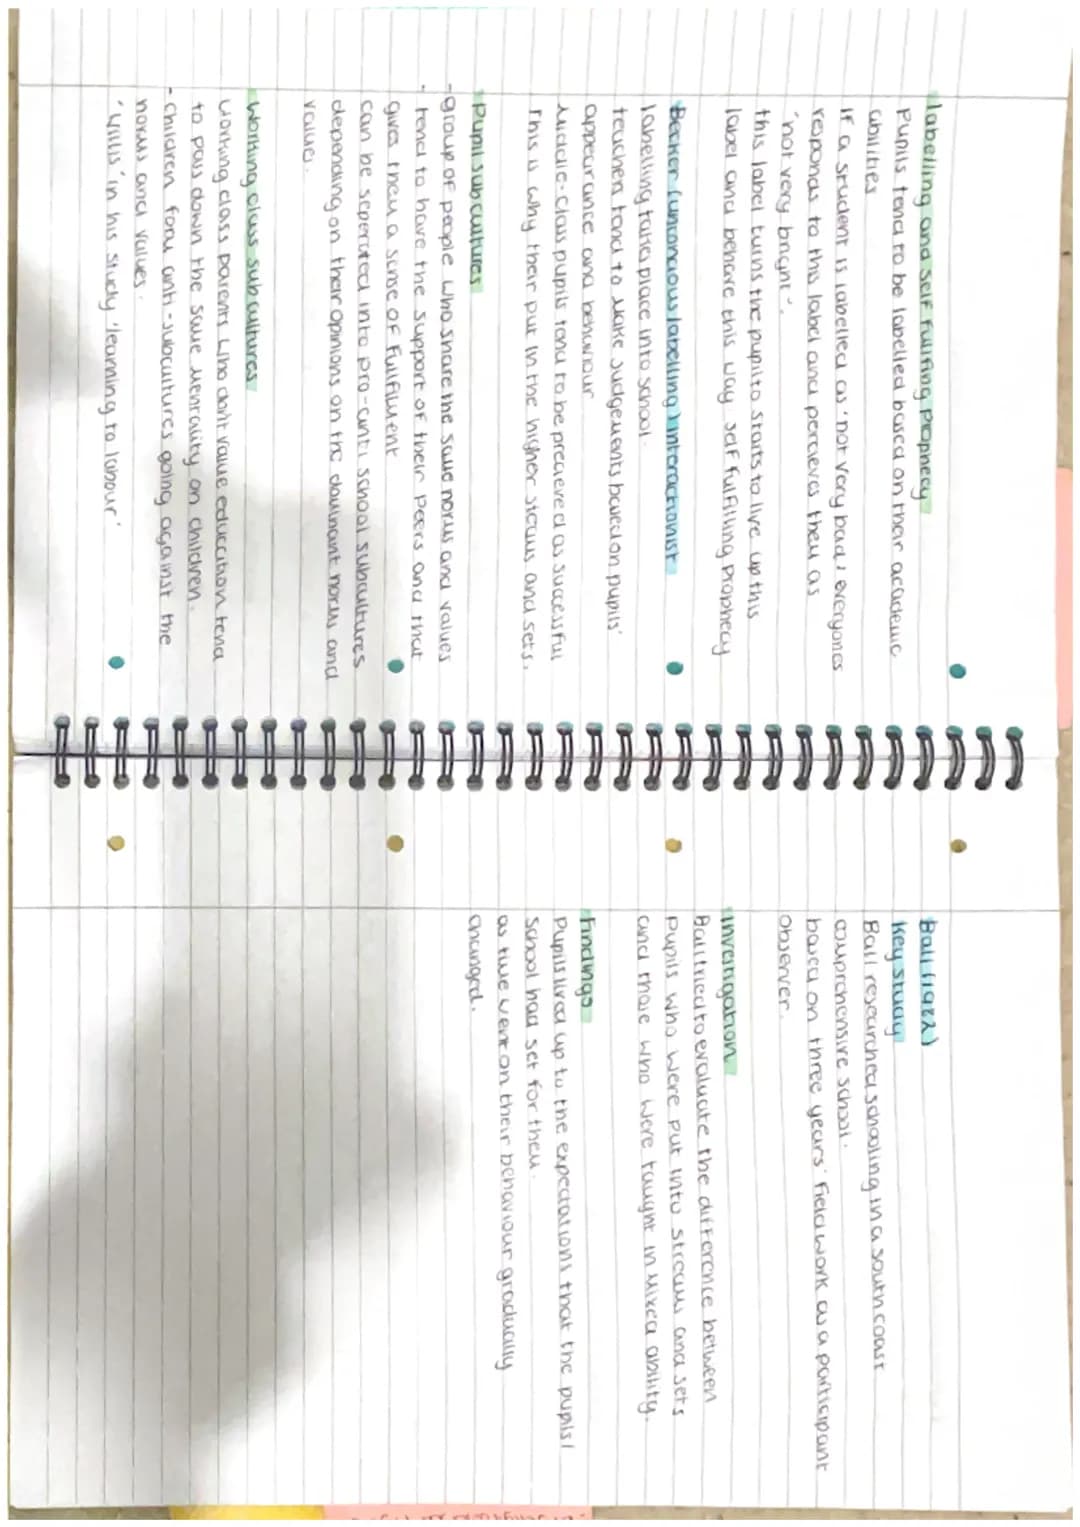 labelling and self fulfiling prophecy
Pupils tend to be labelled based on their academic
abilities
If a student is labelled as 'not very bad, everyones
responds to this label and percieves them as
'not very bright'.
this label turns the pupil to starts to live up this
label and behave this way self fulfilling prophecy
Becker (unconcious labelling) interactionist
labelling takes place into school.
teachers tend to make judgements based on pupils'
appearance and behaviour
Middle-class pupils tend to be precieved as successful
This is why their put in the higher steams and sets.
Pupil subcultures
-group of people who share the same norms and values
· Tend to have the support of their peers and that
gives them a sense of fullfilment
can be seperated into pro-anti school subcultures
depending on their opinions on the dominant norms and
values.
Working class subcultures
Working class parents who don't value education tend
to pass down the same mentality on children.
- Children form anti-subcultures going against the
norms and values.
'Willis' in his study 'learning to labour'
Ball (1981)
Key study
Ball researched schooling in a south coast
comprehensive school.
based on three years' field work as a participant
observer.
Investigation
Ball tried to evaluate the difference between
pupils who were put into streams and sets
and those who were taught in mixed ability.
Findings
Pupils lived up to the expectations that the pupils/
school had set for them.
as time went on their behaviour gradually
changed.